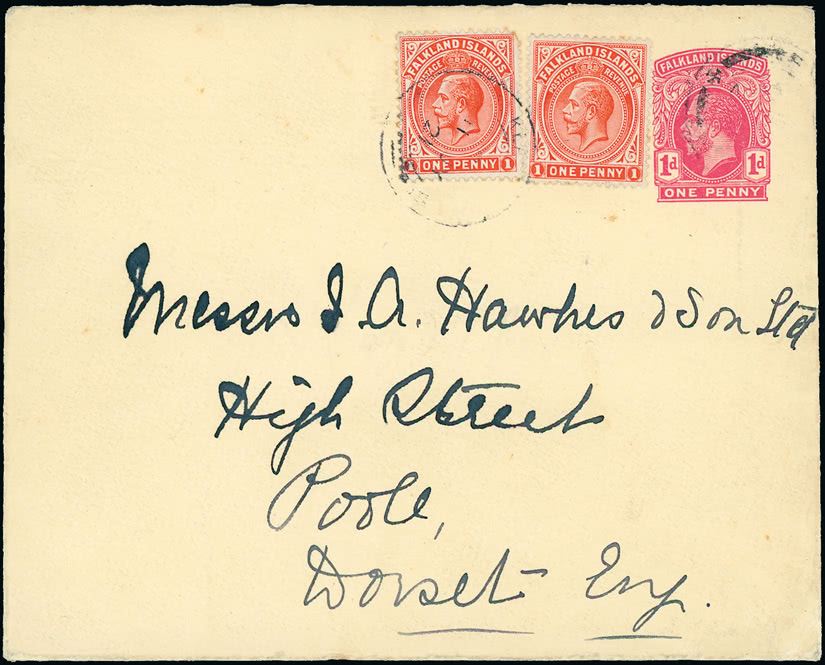 FALKLAND ISLANDS
POSTAGE REVENUE
ONE PENNY 1
FALKLAND ISLANDS
POSTAGE REVENUE
1 ONE PENNY 1
FALKLAND ISLANDS
1d 1d
ONE PENNY
Messrs J. A. Hawkes & Son Ltd
High Street
Poole,
Dorset Eng.